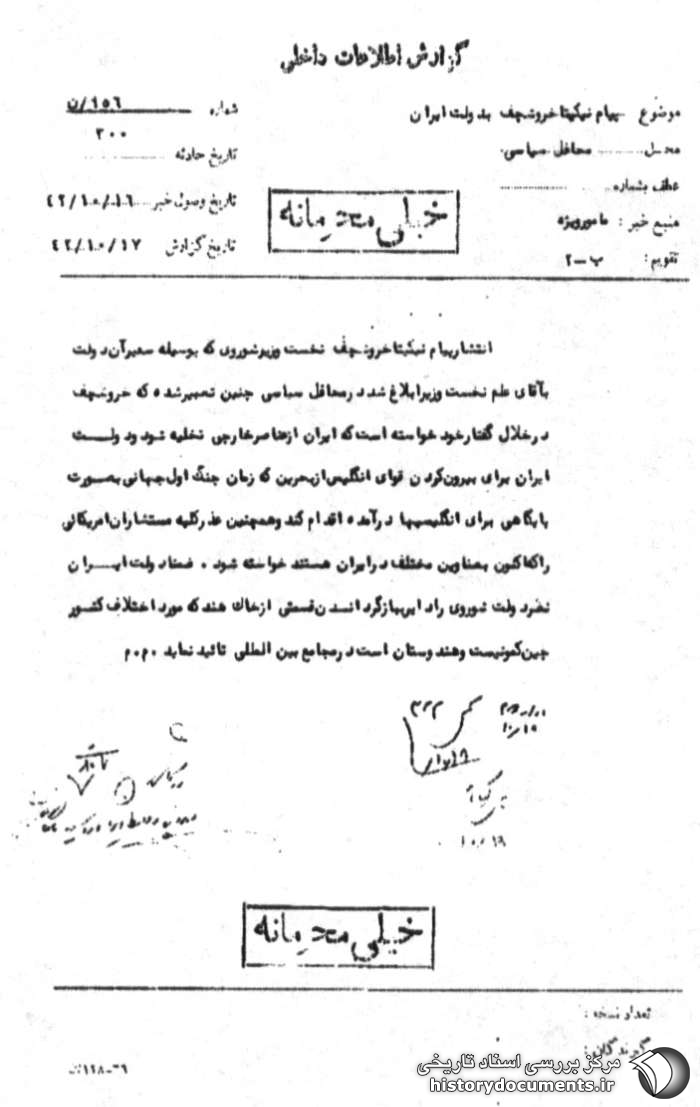 گزارش اطلاعات داخلی
موضوع پیام نیکیتا خروشچف بدولت ایران
شماره ۱۵۶/ن
۳۰۰
محل محافل سیاسی
تاریخ حادثه
عطف بشماره
تاریخ وصول خبر ۴۲/۱۰/۱۶
منبع خبر : مامور ویژه
تاریخ گزارش ۴۲/۱۰/۱۷
تقویم : ب-۲
خیلی محرمانه
انتشار پیام نیکیتا خروشچف نخست وزیر شوروی که بوسیله سفیر آن دولت
بآقای علم نخست وزیر ابلاغ شد در محافل سیاسی چنین تعبیر شده که خروشچف
در خلال گفتار خود خواسته است که ایران از عناصر خارجی تخلیه شود و دولت
ایران برای بیرون کردن قوای انگلیس از بحرین که زمان جنگ اول جهانی بصورت
پایگاهی برای انگلیسیها درآمده اقدام کند و همچنین عذر کلیه مستشاران امریکائی
را که اکنون بعناوین مختلف در ایران هستند خواسته شود . ضمنا دولت ایران
نظر دولت شوروی را دایر ببازگرداندن قسمتی از خاك هند که مورد اختلاف کشور
چین کمونیست و هندوستان است در مجامع بین المللی تائید نماید .م.م
۳۲۲
۱۰/۱۹
۱۰/۱۹
خیلی محرمانه
تعداد نسخه :
گیرندگان :
مرکز بررسی اسناد تاریخی
historydocuments.ir